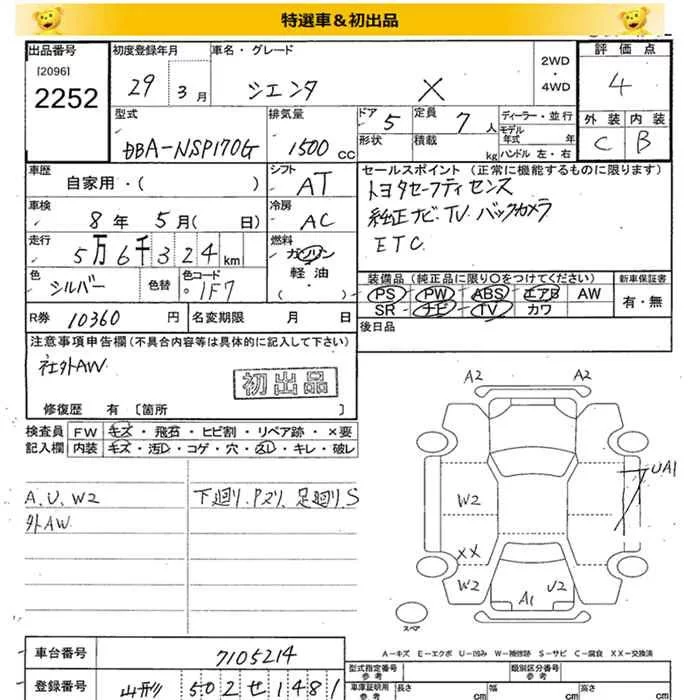 特選車&初出品
出品番号 初度登録年月 車名・グレード 2WD・4WD 評価点
[2096]
2252 29 3月 シエンタ X 4
外装 内装
C B
型式 排気量 ドア 定員 ディーラー・並行
DBA-NSP170G 1500CC 5 7人 モデル年式 年
形状 積載 kg ハンドル 左・右
車歴 自家用・( ) シフト AT セールスポイント (正常に機能するものに限ります)
トヨタセーフティセンス
純正ナビ・TV バックカメラ
ETC
車検 8年5月( 日) 冷房 AC
走行 5万6千324km 燃料 ガソリン
軽油
( ・ )
色 シルバー 色替 色コード 1F7
装備品 (純正品に限り〇をつけてください) 新車保証書
PS PW ABS エアB AW 有・無
SR ナビ TV カワ
R券 10360円 名変期限 月 日 後日品
注意事項申告欄(不具合内容等は具体的に記入して下さい)
社外AW
初出品
修復歴 有 [箇所 ]
検査員 FW キズ・飛石・ヒビ割・リペア跡・×要
記入欄 内装 キズ・汚レ・コゲ・穴・スレ・キレ・破レ
A、U、W2 下廻り、Pズリ、足廻り、S
外AW
A2 A2
UA1
W2
XX
W2 U2
A1
スペア
A-キズ E-エクボ U-凹み W-補修跡 S-サビ C-腐食 XX-交換済
車台番号 7105214 型式指定番号 参考 類別区分番号 参考
登録番号 山形 502せ1481 車庫証明用 参考 長さ cm 幅 cm 高さ cm